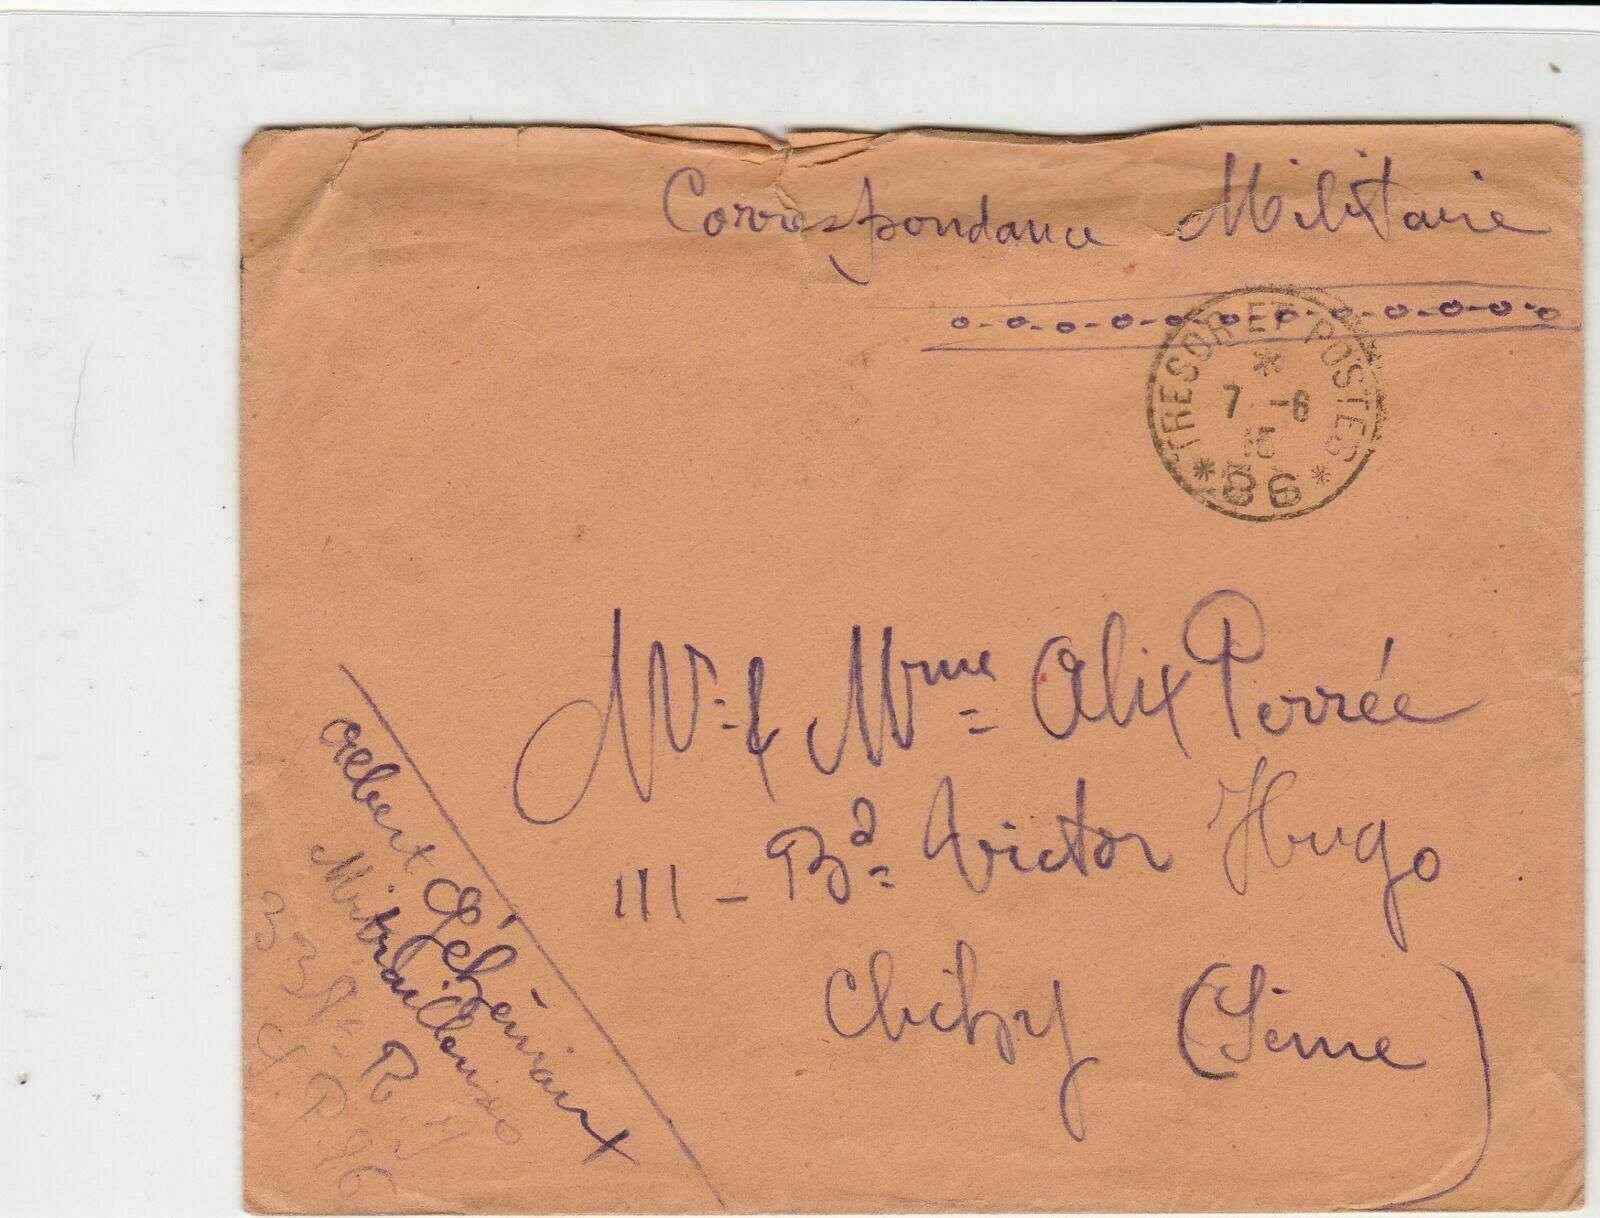 Correspondance Militaire
TRESOR ET POSTES
7 -6
15
* 86 *
Mr. & Mme Alix Perrée
111 - Bd Victor Hugo
Clichy (Seine)
Albert Géhéniaux
Mitrailleuses
R. I.
S. P. 86